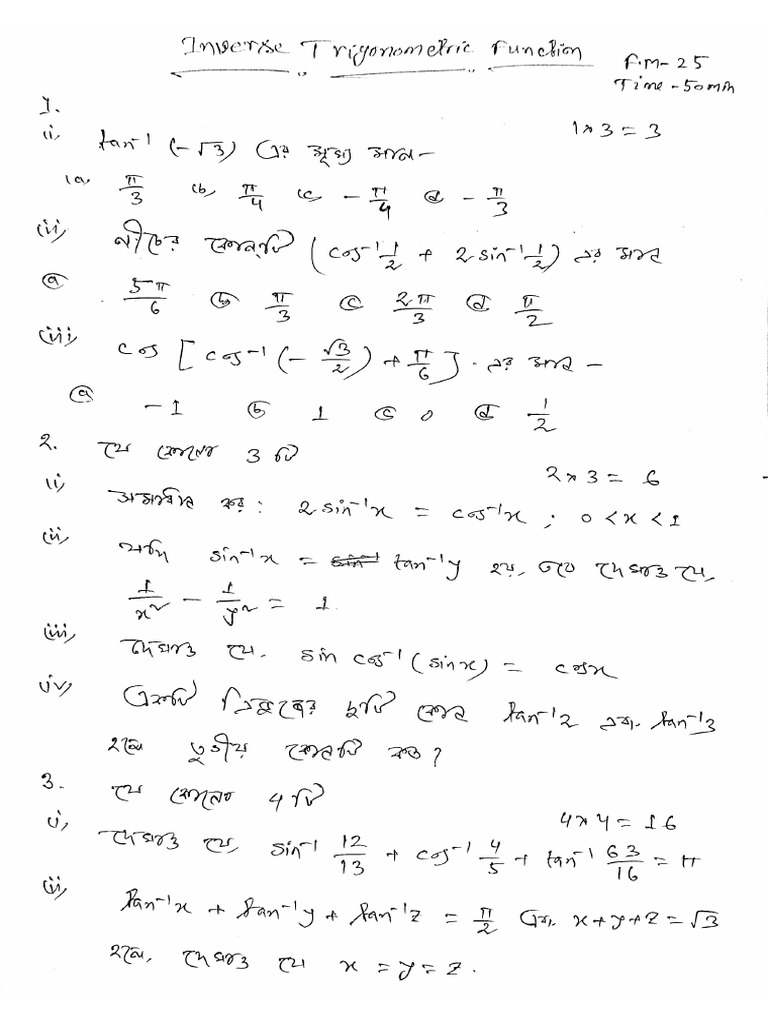 Inverse Trigonometric Function
F.M- 25
Time - 50 min
1. 1×3 = 3
(i) tan⁻¹ (-√3) এর মূখ্য মান-
(a) π/3 (b) π/4 (c) - π/4 (d) - π/3
(ii) নীচের কোনটি (cos⁻¹ 1/2 + 2 sin⁻¹ 1/2) এর মান
(a) 5π/6 (b) π/3 (c) 2π/3 (d) π/2
(iii) cos [cos⁻¹ (- √3/2) + π/6]. এর মান -
(a) -1 (b) 1 (c) 0 (d) 1/2
2. যে কোনো 3 টি 2×3 = 6
(i) সমাধান কর: 2 sin⁻¹x = cos⁻¹x ; 0 < x < 1
(ii) যদি sin⁻¹x = tan⁻¹y হয়, তবে দেখাও যে,
1/x² - 1/y² = 1.
(iii) দেখাও যে, sin cos⁻¹ (sin x) = cos x
(iv) একটি ত্রিভুজের দুটি কোন tan⁻¹2 এবং tan⁻¹3
হলে তৃতীয় কোনটি কত?
3. যে কোনো 4 টি 4×4 = 16
(i) দেখাও যে, sin⁻¹ 12/13 + cos⁻¹ 4/5 + tan⁻¹ 63/16 = π
(ii) tan⁻¹x + tan⁻¹y + tan⁻¹z = π/2 এবং x+y+z = √3
হলে, দেখাও যে x = y = z.